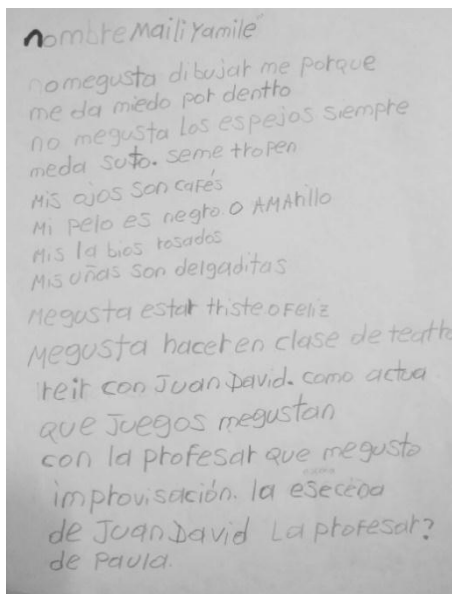 nombre Maili Yamile
no megusta dibujar me porque
me da miedo por dentro
no megusta los espejos siempre
meda suto. seme tropen
Mis ojos son cafés
Mi pelo es negro o AMArillo
Mis la bios rosados
Mis uñas son delgaditas
Megusta estar triste o Feliz
Megusta hacer en clase de teatro
reir con Juan David. como actua
que Juegos megustan
con la profesar que megusto
improvisación. la esecena
de Juan David La profesar?
de Paula.